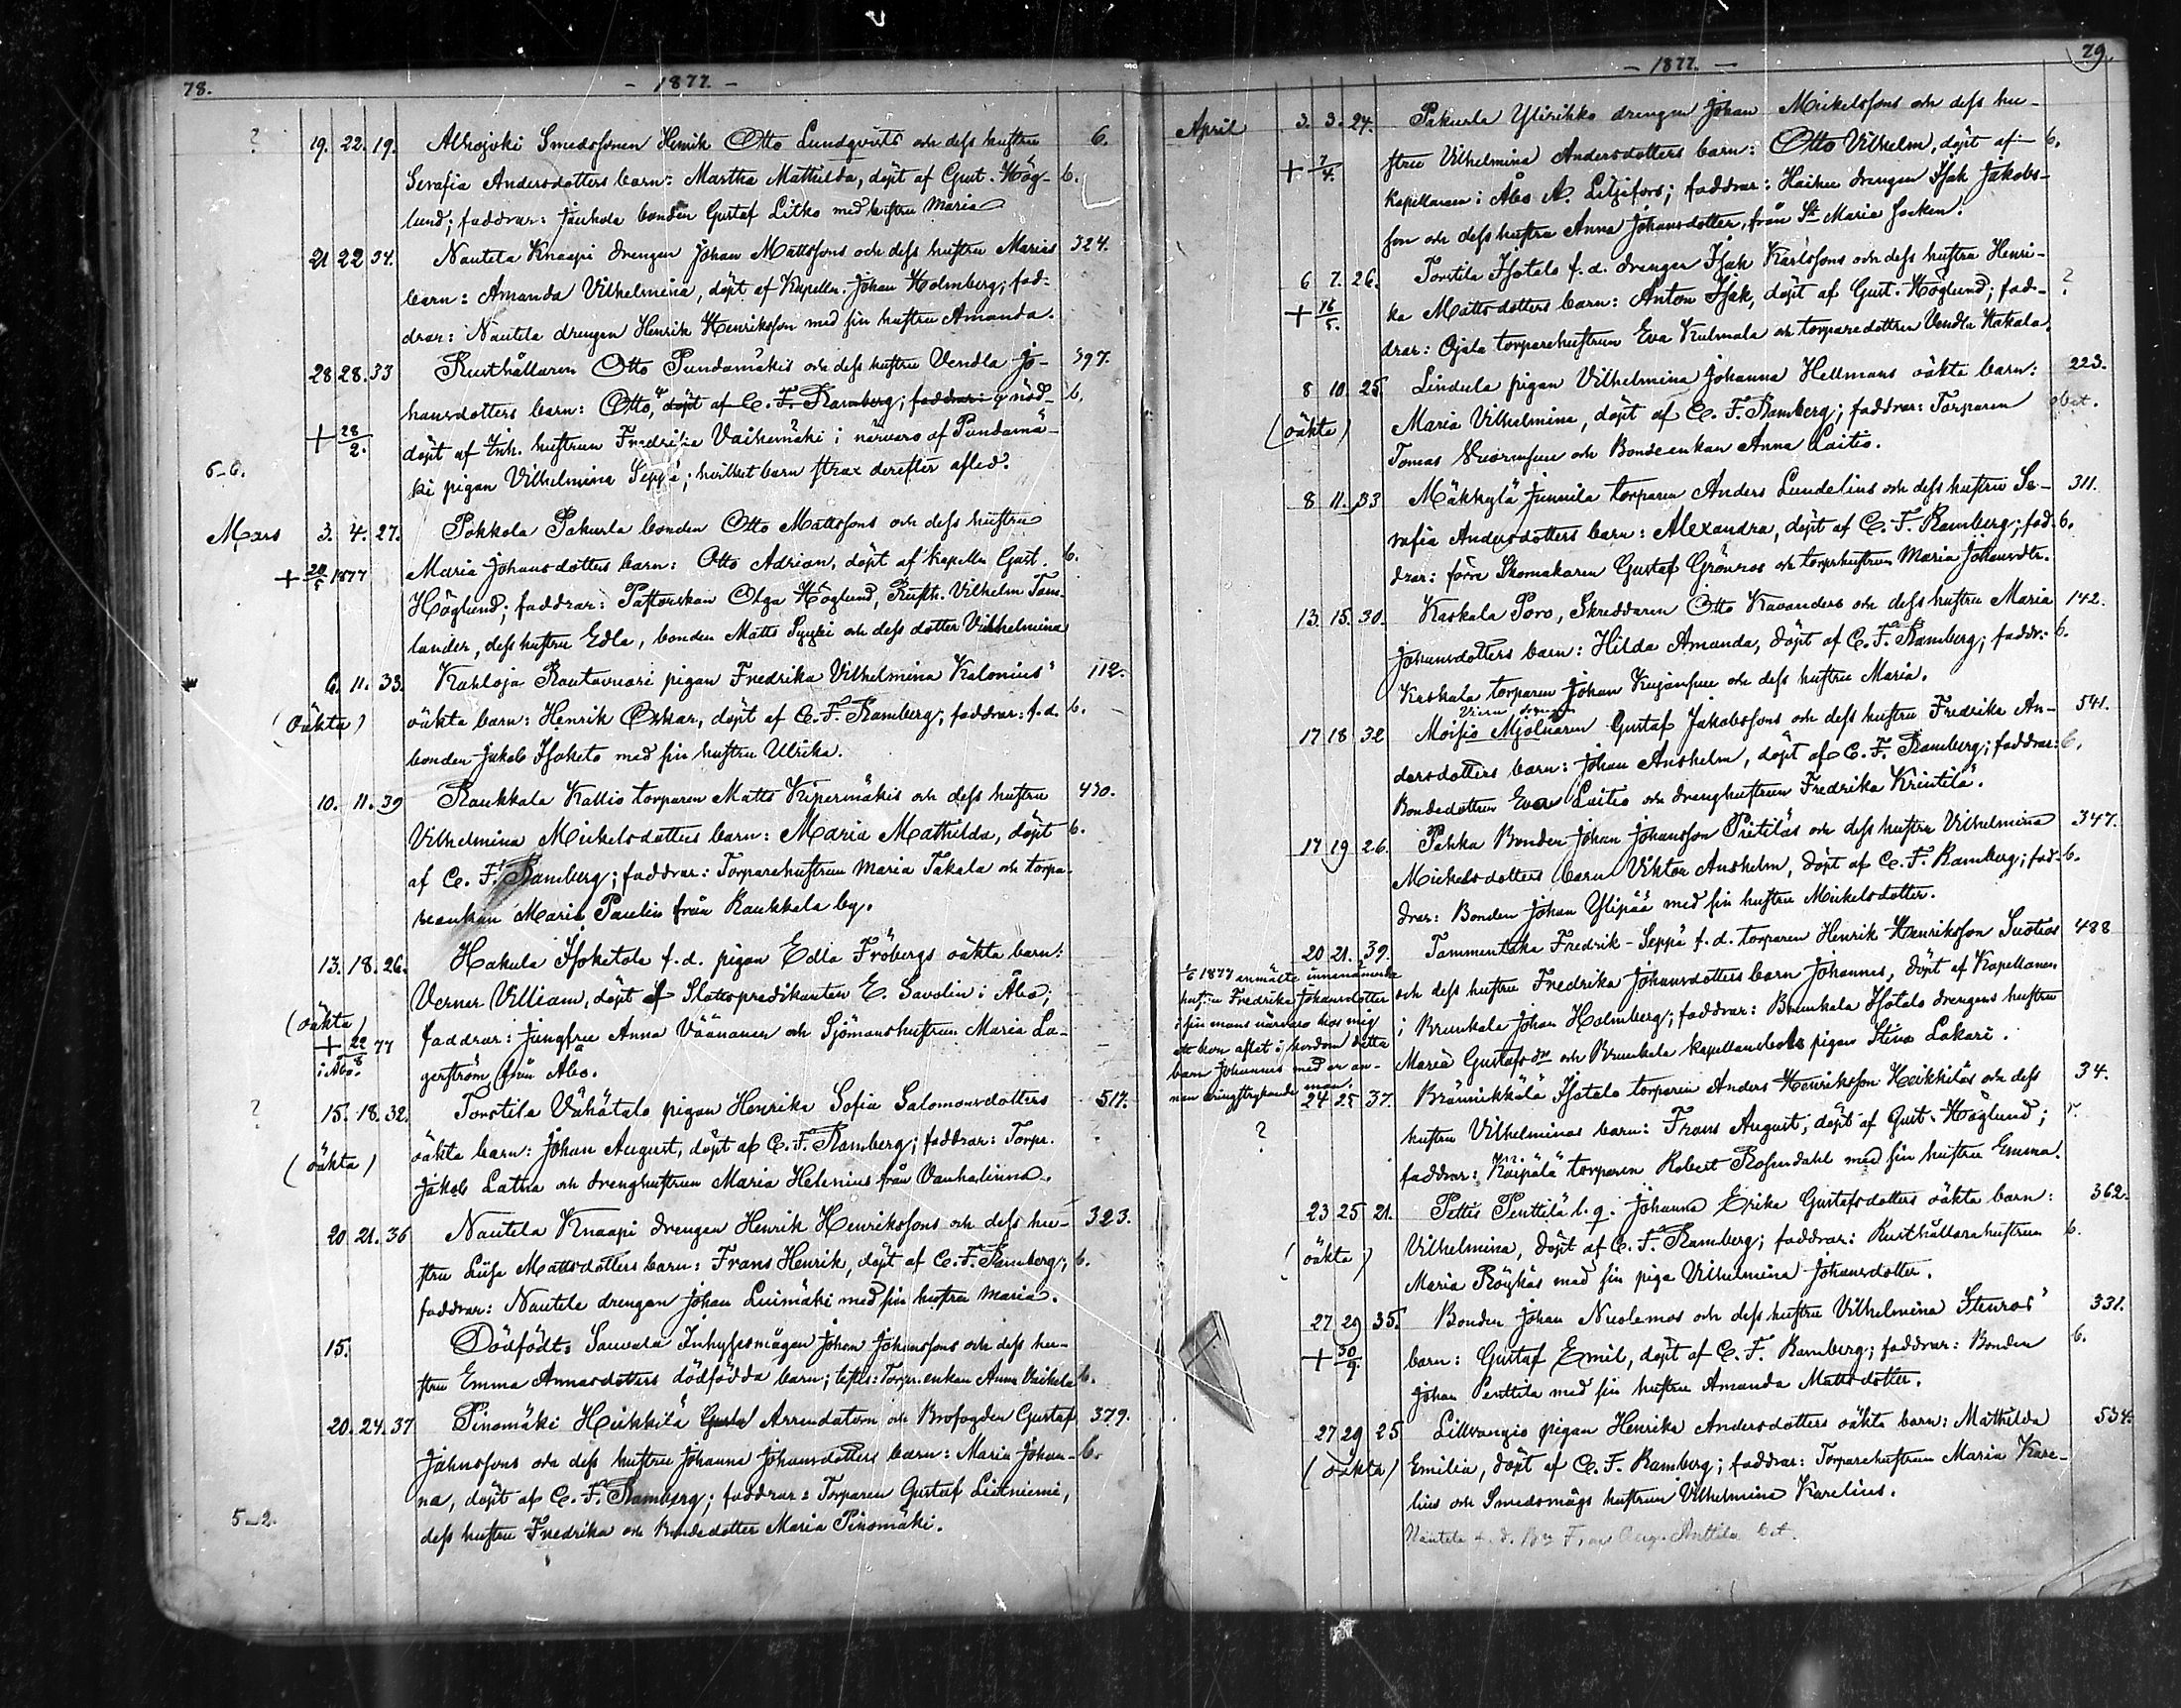 78.
- 1877. -
? 19. 22. 19. Alhojoki Smedssonen Henrik Otto Lundqvists och dess hustru 6.
Serafia Andersdotters barn: Martha Mathilda, döpt af Gust. Hög- b.
lund; faddrar: bonden Gustaf Litko med hustru Maria
21 22 34. Nautela Knaapi drengen Johan Mattssons och dess hustru Marias 324.
barn: Amanda Vilhelmina, döpt af Kapelln. Johan Holmberg; fad-
drar: Nautela drengen Henrik Henriksson med sin hustru Amanda.
28 28. 33 Rusthållaren Otto Pundamäkis och dess hustru Vendla Jo- 397.
hansdotters barn: Otto, döpt af C. F. Ramberg; faddrar: nöd- b.
+ 28/2. döpt af Inh. hustrun Fredrika Vaihemäki i närvaro af Pundamä-
6-6. ki pigan Vilhelmina Seppä; hvilket barn strax derefter afled.
Mars 3. 4. 27. Pokkola Pakurla bonden Otto Mattssons och dess hustru
+ 20/5 1877 Maria Johansdotters barn: Otto Adrian, döpt af Kapelln Gust. b.
Höglund; faddrar: Pastorskan Olga Höglund, Rusth. Vilhelm Tam-
lander, dess hustru Edla, bonden Matts Pyyki och dess dotter Vilhelmina
6. 11. 33. Kahloja Rautavuori pigan Fredrika Vilhelmina Kalonius' 112.
(oäkta) oäkta barn: Henrik Oskar, döpt af C. F. Ramberg; faddrar: f.d. b.
bonden Jakob Isoketo med sin hustru Ulrika.
10. 11. 39 Raukkala Kallio torparen Matts Kipermäkis och dess hustru 430.
Vilhelmina Mickelsdotters barn: Maria Mathilda, döpt b.
af C. F. Ramberg; faddrar: Torparehustrun Maria Takala och torpa-
reenkan Maria Paulin från Raukkala by.
13. 18. 26. Hakula Isoketola f.d. pigan Edla Fröbergs oäkta barn:
Verner Villiam, döpt af Slottspredikanten E. Savolin i Åbo;
(oäkta) faddrar: Jungfru Anna Väänänen och Sjömanshustrun Maria La-
+ 22/8 77 i Åbo. gerström från Åbo.
? 15. 18. 32. Torstila Vähätalo pigan Henrika Sofia Salomonsdotters 517.
(oäkta) oäkta barn: Johan August, döpt af C. F. Ramberg; faddrar: Torpr.
Jakob Latna och drenghustrun Maria Helenius från Vanhalinna.
20 21. 36 Nautela Knaapi drengen Henrik Henrikssons och dess hu- 323.
stru Lisa Mattsdotters barn: Frans Henrik, döpt af C. F. Ramberg; b.
faddrar: Nautela drengen Johan Luimäki med sin hustru Maria.
15. Dödfödt: Sauvala Inhysesmågen Johan Johanssons och dess hu-
stru Emma Annasdotters dödfödda barn; testes: Torpr.enkan Anna Vaihela b.
20. 24. 37 Pinomäki Heikkilä Gustaf Arrendatorn och Brofogden Gustaf 379.
Johnssons och dess hustru Johanna Johansdotters barn: Maria Johan- b.
na, döpt af C. F. Ramberg; faddrar: Torparen Gustaf Lietniemi,
5-2. dess hustru Fredrika och Bondedotter Maria Pinomäki.
- 1877. -
79.
April 3. 3. 24. Pakurla Ylirihko drengen Johan Mickelssons och dess hu-
+ 7/4. stru Vilhelmina Andersdotters barn: Otto Vilhelm, döpt af b.
Kapellanen i Åbo A. Liljefors; faddrar: drengen Isak Jakobs-
son och dess hustru Anna Johansdotter, från St Marie socken.
6 7. 26. Torstila Isotalo f.d. drengen Isak Karlssons och dess hustru Henri-
+ 16/5. ka Mattsdotters barn: Anton Isak, döpt af Gust. Höglund; fad- ?
drar: Ojala torparehustrun Eva Kulmala och torparedottren Vendla Kakala.
8 10. 25. Lindula pigan Vilhelmina Johanna Hellmans oäkta barn: 223.
(oäkta) Maria Vilhelmina, döpt af C. F. Ramberg; faddrar: Torparen
Tomas och Bondeenkan Anna Laitio.
8 11. 33 Mäkkylä Junnila torparen Anders Lundelius och dess hustru Se- 311.
rafia Andersdotters barn: Alexandra, döpt af C. F. Ramberg; fad- b.
drar: förre Skomakaren Gustaf Grönros och torprhustrun Maria Johansdtr.
13. 15. 30. Karkala Poro, Skreddaren Otto Kavanders och dess hustru Maria 142.
Johansdotters barn: Hilda Amanda, döpt af C. F. Ramberg; faddr: b.
Karkala torparen Johan Kujanpuu och dess hustru Maria.
17 18 32 Moisio Mjölnaren Gustaf Jakobssons och dess hustru Fredrika An- 541.
dersdotters barn: Johan Anshelm, döpt af C. F. Ramberg; faddrar: b.
Bondedottren Eva Laitio och drenghustrun Fredrika Krintilä.
17 19 26. Pahka Bonden Johan Johansson Pritiläs och dess hustru Vilhelmina 347.
Mickelsdotters barn Viktor Anshelm, döpt af C. F. Ramberg; fad- b.
drar: Bonden Johan Ylipää med sin hustru Mickelsdotter.
20 21. 39. Tammentaka Fredrik-Seppä f.d. torparen Henrik Henriksson Suotios 488
1877 anmälte
hustru Fredrika Johansdotter
i sin mans närvaro hos mig
att hon aflat i hordom detta
barn Johannes med en an-
nan kringstrykande man.
och dess hustru Fredrika Johansdotters barn Johannes, döpt af Kapellanen
i Brunkala Johan Holmberg; faddrar: Brunkala Isotalo drengens hustru
Maria Gustafsdr och Brunkala kapellansbols pigan Stina Lakari.
24 25 37. Bränikkälä Isotalo torparen Anders Henriksson Heikkiläs och dess 34.
? hustru Vilhelminas barn: Frans August, döpt af Gust. Höglund;
faddrar: Kaipälä torparen Robert Rosendahl med sin hustru Emma.
23 25 21. Pettis Penttilä l.q. Johanna Erika Gustafsdotters oäkta barn: 362.
(oäkta) Vilhelmina, döpt af C. F. Ramberg; faddrar: Rusthållarehustrun b.
Maria Röykäs med sin piga Vilhelmina Johansdotter.
27 29 35. Bonden Johan Nuolemos och dess hustru Vilhelmina Stenros' 331.
+ 30/9. barn: Gustaf Emil, döpt af C. F. Ramberg; faddrar: Bonden b.
Johan Penttila med sin hustru Amanda Mattsdotter.
27 29 25 Lillvangio pigan Henrika Andersdotters oäkta barn: Mathilda 534.
(oäkta) Emilia, döpt af C. F. Ramberg; faddrar: Torparehustrun Maria Kare-
lius och Smedsmågs hustrun Vilhelmina Karelius.
Nautela f.d. Anttila